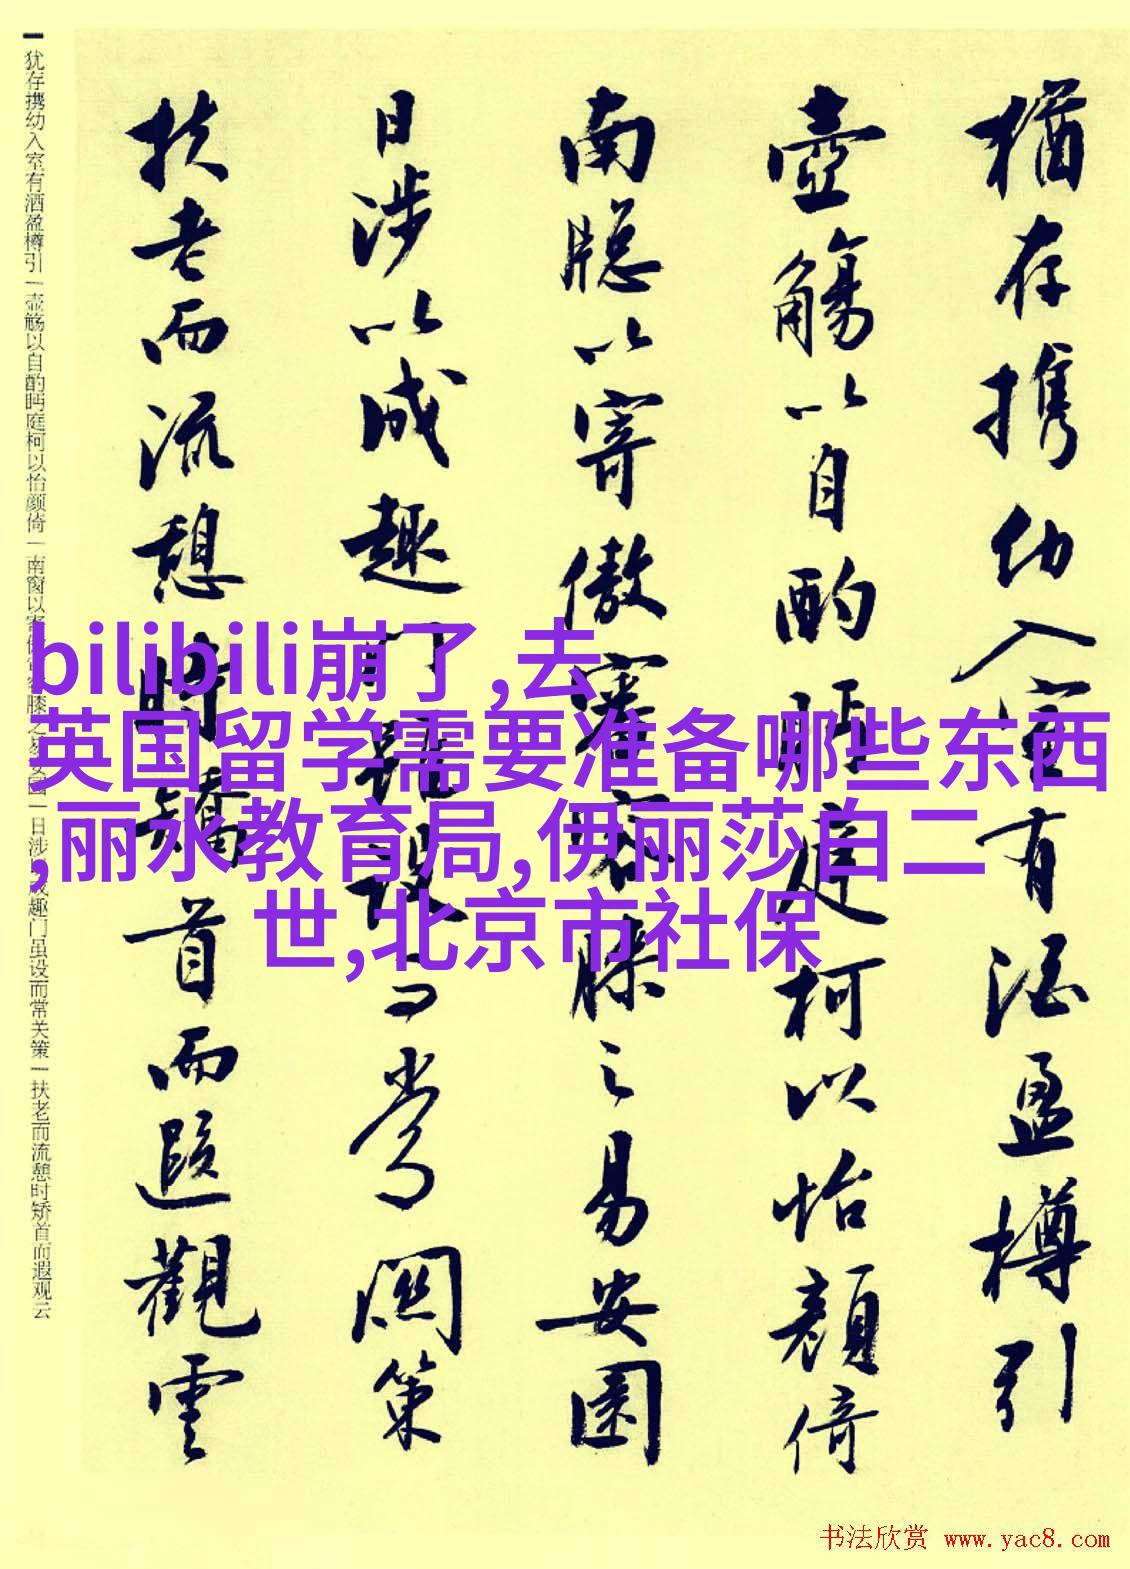 猶存携幼入室有酒盈樽引
壺觴以自酌眄庭柯以怡顔倚
南牕以寄傲審容膝之易安園
日涉以成趣門雖設而常関策
扶老而流憩時矯首而遐觀雲
犹存携幼入室有洒盈樽引|壶觞以自酌眄庭柯以怡颜倚|南窗以寄傲审容膝之易安园|日涉以成趣门虽设而常关策|扶老而流憩时矫首而遐观云
bilibili崩了,去
英国留学需要准备哪些东西
,丽水教育局,伊丽莎白二
世,北京市社保
书法欣赏 www.yac8.com